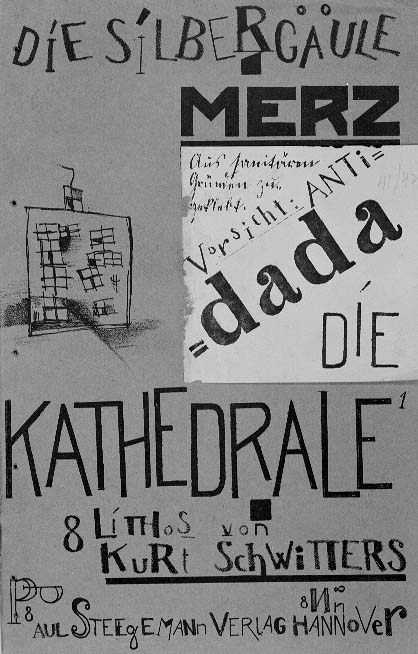 DíE SíLBERGÄULE
MERZ
Aus sanitären
Gründen zu-
geklebt.
Vorsicht: ANTi=
=dada
DíE
KATHEDRALE 1
8 LíTHoS von
KuRt SchWíTTERS
PAUL STEEgEMANn VERLAG HANNoVER